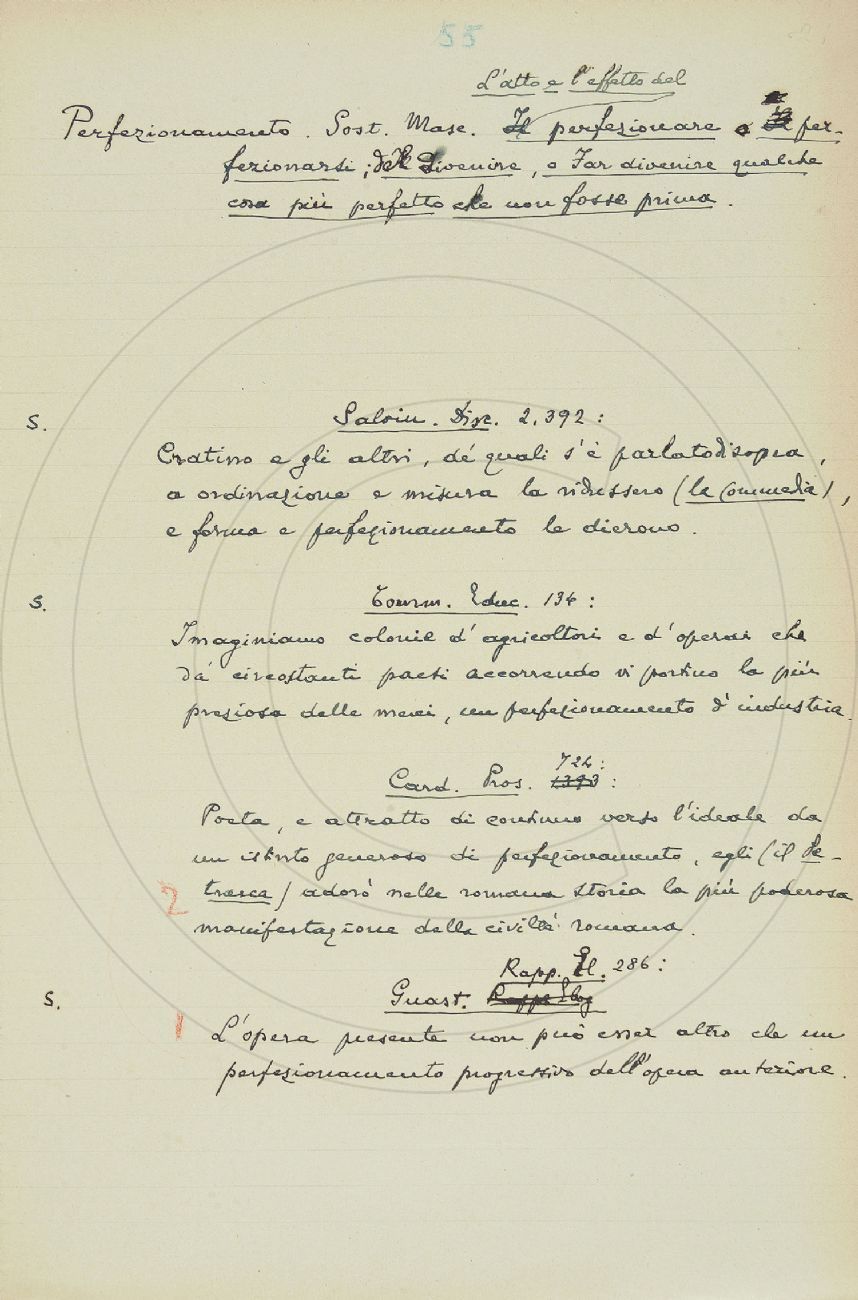 55
L'atto e l'effetto del
Perfezionamento. Sost. Masc. Il perfezionare o Il per-
fezionarsi; del divenire, o Far divenire qualche
cosa più perfetto che non fosse prima.
S.
Salvin. Disc. 2, 392:
Cratino e gli altri, de' quali s'è parlato disopra,
a ordinazione e misura la ridussero (la Commedia),
e forma e perfezionamento le dierono.
S.
Tomm. Educ. 134:
Imaginiamo colonie d'agricoltori e d'operai che
da' circostanti paesi accorrendo vi portino la più
preziosa delle merci, un perfezionamento d'industria.
724:
Card. Pros. 1393:
Poeta, e attratto di continuo verso l'ideale da
un istinto generoso di perfezionamento, egli (il Pe-
2
trarca) adorò nella romana storia la più poderosa
manifestazione della civiltà romana.
Rapp. El. 286:
S.
Guast. Rapp. Elog
1
L'opera presente non può esser altro che un
perfezionamento progressivo dell'opera anteriore.